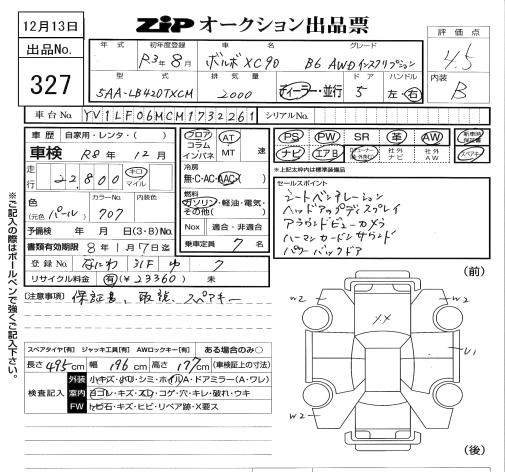 12月13日
出品No.
327
ZIP オークション出品票
評価点
4.5
内装
B
年式 初年度登録 車名 グレード
R3年8月 ボルボXC90 B6 AWDインスクリプション
型式 排気量 ドア ハンドル
5AA-LB420TXCM 2000 ディーラー・並行 5 左・右
車台No. YV1LF06MCM1732261 シリアルNo.
車歴 自家用・レンタ・( )
車検 R8年12月
走行 22,800 キロ マイル
色 (元色 パール) カラーNo. 707 内装色
予備検 年 月 日(3・8)No.
書類有効期限 8年1月7日迄
登録 No. なにわ 31F ゆ 7
リサイクル料金 有(¥23360) 無
フロア AT
コラム
インパネ MT 速
冷房
無・C・AC・AAC
燃料
ガソリン・軽油・電気・
その他( )
Nox 適合・非適合
乗車定員 7 名
PS PW SR 革 AW 新車時保証書
ナビ エアB 社外ナビ 社外AW スペアキー
*上記太枠内は標準装備品
セールスポイント
シートベンチレーション
ヘッドアップディスプレイ
アラウンドビューカメラ
ハーマンカードンサウンド
パワーバックドア
[注意事項] 保証書、取説、スペアキー
※ご記入の際はボールペンで強くご記入下さい。
スペアタイヤ[有] ジャッキ工具[有] AWロックキー[有] ある場合のみ○
長さ 495cm 幅 196cm 高さ 177cm (車検証上の寸法)
検査記入
外装 小キズ・小凹・シミ・ホイルA・ドアミラー(A・ワレ)
室内 ヨゴレ・キズ・スレ・コゲ・穴・キレ・破れ・ウキ
FW トビ石・キズ・ヒビ・リペア跡・X要ス
(前)
W2
W2
XX
U1
W2
(後)